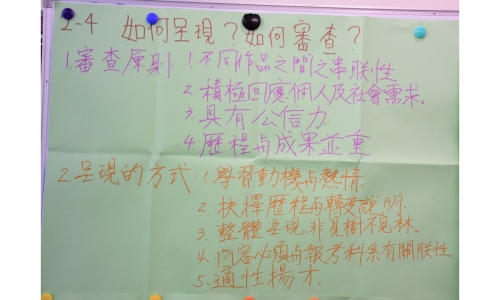 2-4 如何呈現？如何審查？
1.審查原則 1.不同作品之間之串联性
2.積極回應個人及社會需求.
3.具有公信力
4.歷程与成果並重
2.呈現的方式：1.學習動機与熱情.
2.抉擇歷程与轉变說明.
3.整體呈現.非見樹不見林.
4.內容必須与報考科系有關联性
5.適性揚才.